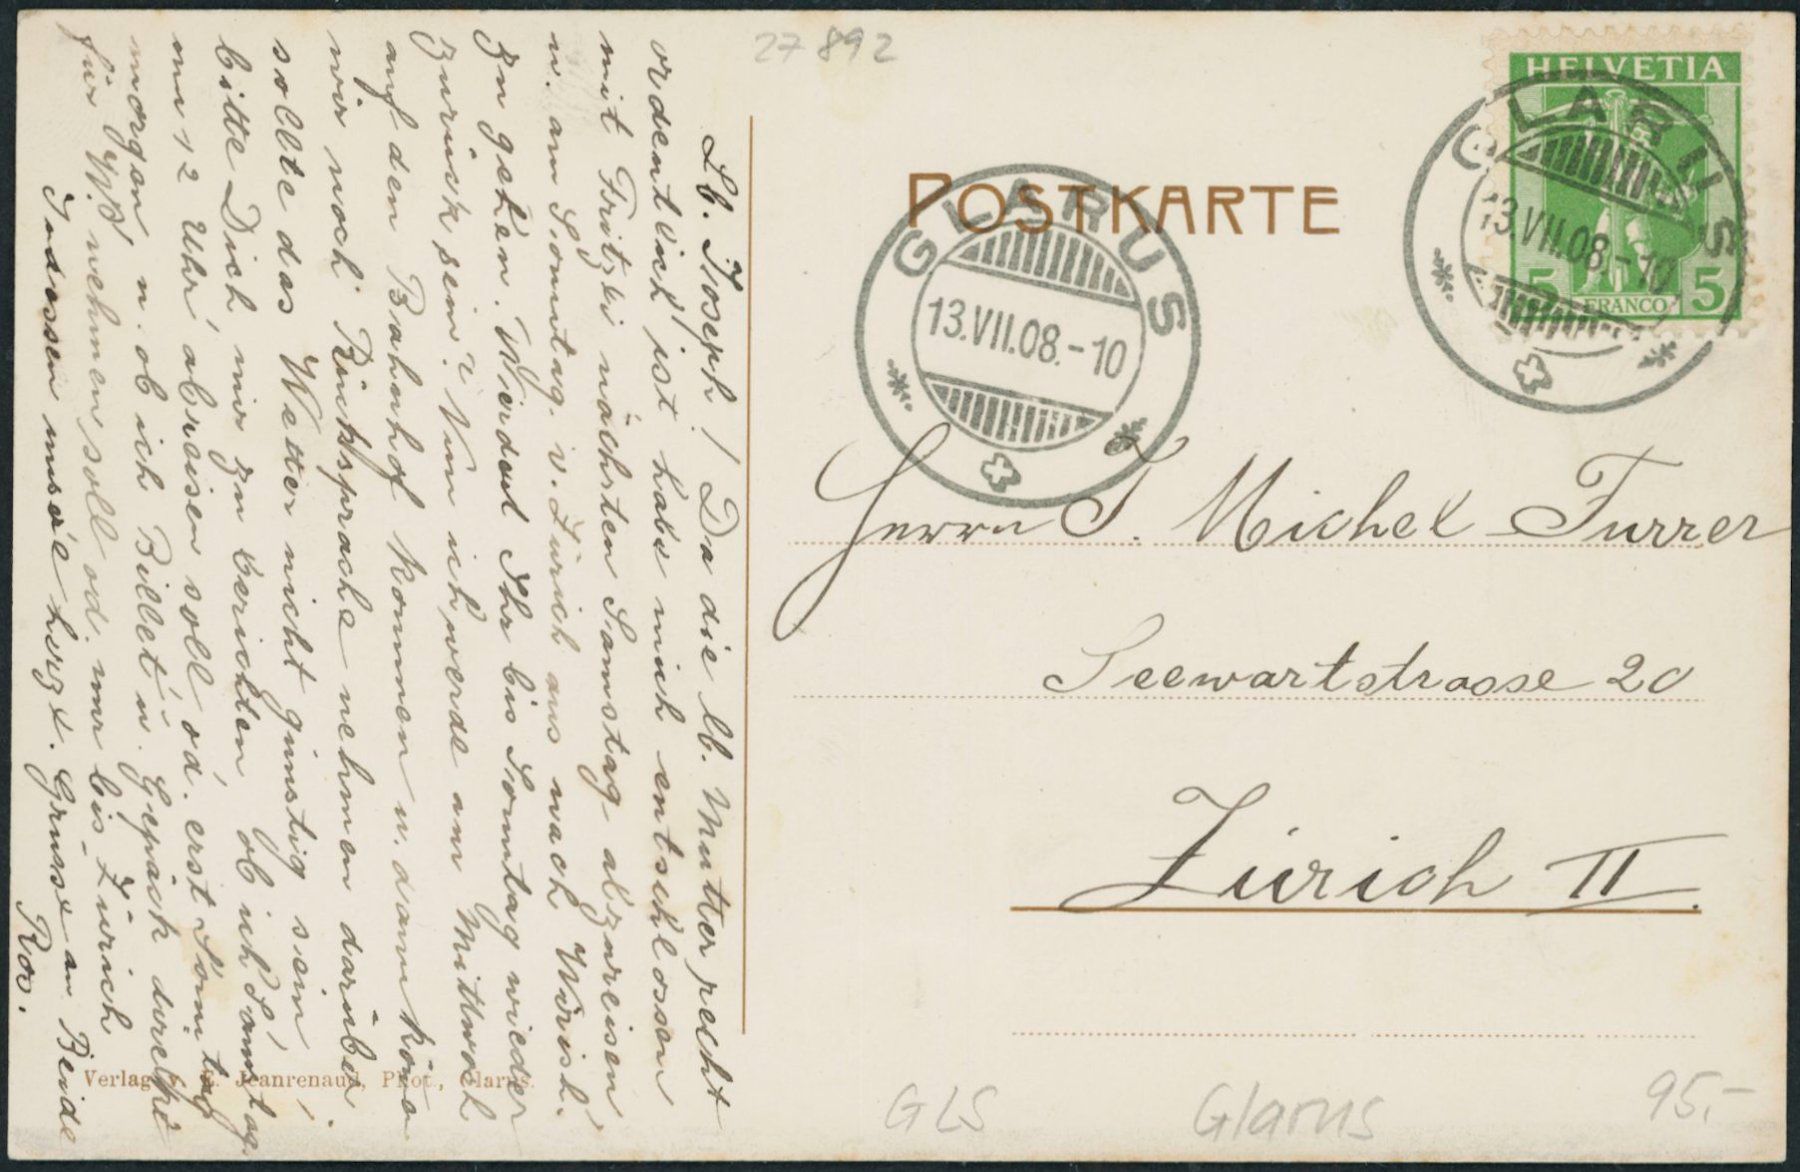 27892
POSTKARTE
HELVETIA
5 FRANCO 5
GLARUS
13.VII.08.-10
GLARUS
13.VII.08.-10
Herrn J. Michel-Furrer
Seewartstrasse 20
Zürich II.
Lb. Joseph! Da die lb. Mutter recht
ordentlich ist habe mich entschlossen
mit Fritzli nächsten Samstag abzureisen
u. am Sonntag v. Zürich aus nach
zu gehen. Werdet Ihr bis Sonntag wieder
zurück sein? Nun ich werde am Mittwoch
auf den Bahnhof kommen u. dann können
wir noch Rücksprache nehmen darüber.
sollte das Wetter nicht günstig sein,
bitte Dich mir zu berichten, ob ich Samstag
um 12 Uhr abreisen soll od. erst Sonntag
morgen u. ob ich Billet u. Gepäck direkt
für nehmen soll od. nur bis Zürich
Indessen herzl. Grüsse an Beide
Verlag v. Jeanrenaud, Phot., Glarus.
GLS
Glarus
95.-